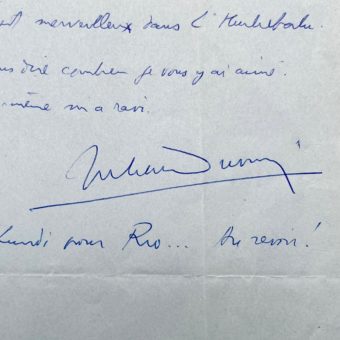 merveilleux dans L'Hurluberlu.
ous dire combien je vous y ai aimé.
-même m'a ravi.
Lundi pour Rio... Au revoir!